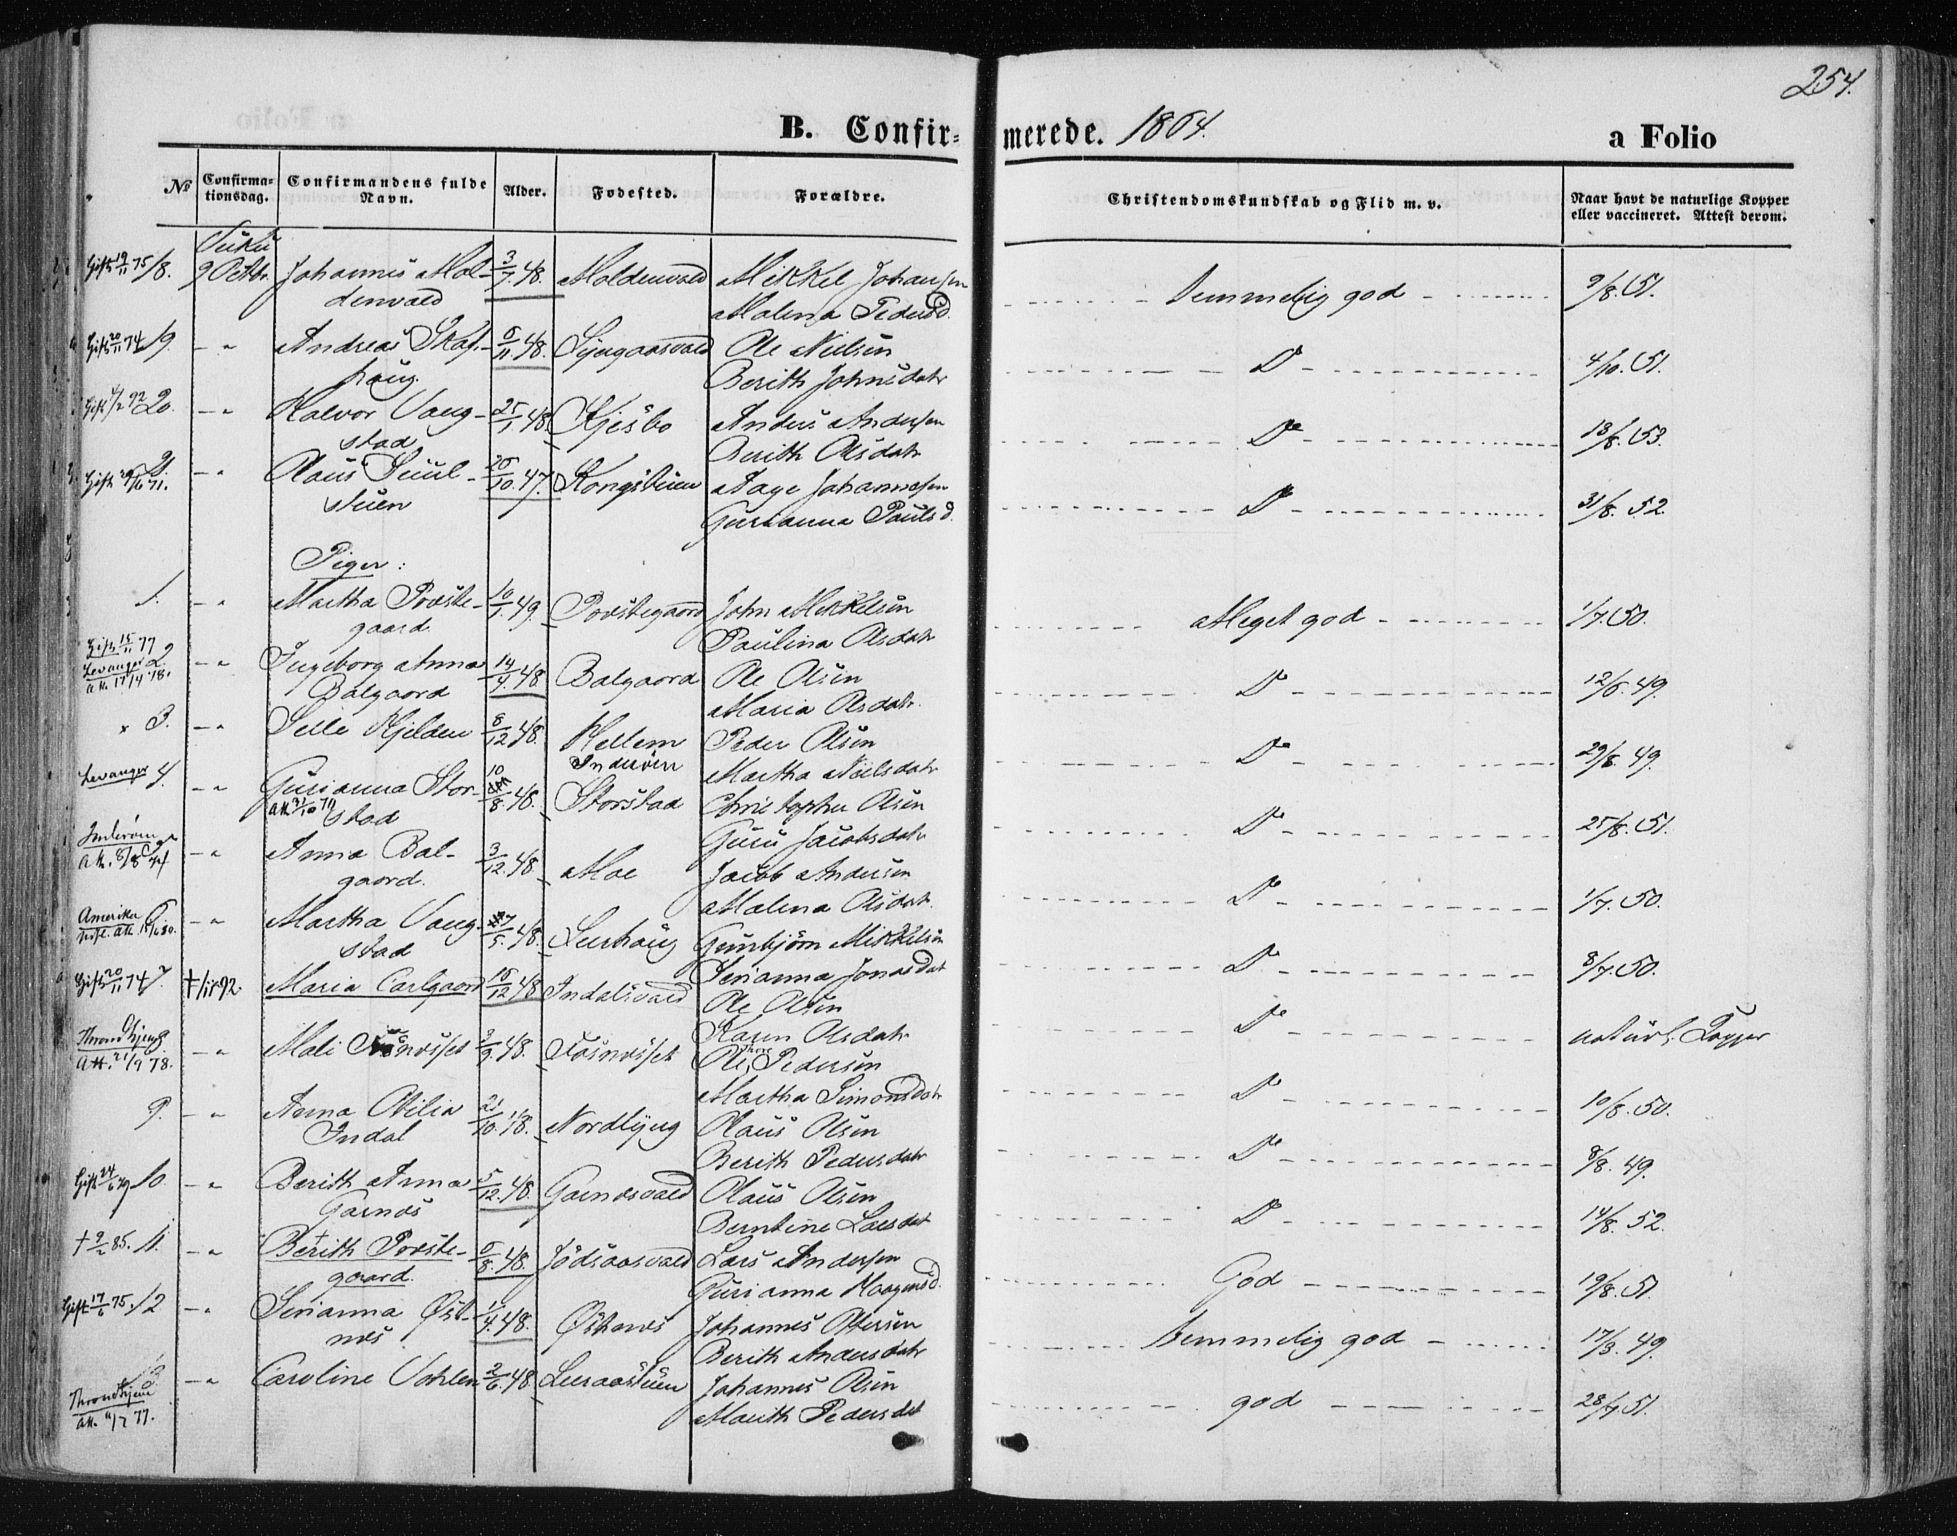 254.
B. Confirmerede. 1864. a Folio
No Confirmationsdag. Confirmandens fulde Navn. Alder. Fødested. Forældre. Christendomskundskab og Flid m. v. Naar havt de naturlige Kopper eller vaccineret. Attest derom.
Gift 19/11 75 18. 9 Octbr. Johannes Mol- 3/7 48. Moldenvald Mikkel Johansen Temmelig god 9/8. 51.
denvald Malena Pedersd.
Gift 20/11 74 19. - " Andreas Skaf- 6/11 48. Ole Nielsen Do 4/10. 51.
haug. Berith Johnsdatr
Gift 4/2 92 20. - " Halvor Vang- 25/1 48. Kjesbo Anders Andersen Do 13/8. 53.
stad Berith Olsdatr
Gift 29/6 71. 21. - " Olaus Suul- 26/10. 47. Kongstuen Aage Johannesen Do 31/8. 52.
stuen Gurianna Paulsd.
Piger:
1. - " Martha Præste- 10/1. 49. Præstegaard John Mikkelsen Meget god 1/7. 50.
gaard. Paulina Olsdatr
Gift 15/11 77
Levanger 2. - " Ingeborg Anna 14/4. 48. Balgaard Ole Olsen Do 12/6. 49.
att. 17/4 78. Balgaard Maria Olsdatr.
x 3. - " Selle Kjelden 8/12 48. Hellem Peder Olsen Do 29/8. 49.
Inderøen Martha Nielsdatr
Levanger 4. - " Gurianna Stor- 10/8. 48. Storstad Christopher Olsen Do 25/8. 51.
stad Guru Jacobsdatr
Inderøen 5. - " Anna Bal- 3/12. 48. Moe Jacob Andersen Do 1/7. 50.
att. 8/8 74 gaard. Malena Olsdatr.
Amerika 6. - " Martha Vang- 5. 48. Lurhaug Gunbjørn Mikkelsen Do 8/7. 50.
stad Serianna Jonasdat
Gift 20/11 74 7. † 92. Maria Carlgaard 16/12 48 Indalsvald Ole Olsen Do naturl. Kopper
Karen Olsdatr
Throndhjem 8. - " Mali 3/9. 48. Ole Pedersen Do 10/8. 50.
Att. 21/9 78. Martha Simonsdatr
9. - " Anna Otilia 21/10. 48. Nordlyng Olaus Olsen Do 8/8. 49.
Indal Berith Pedersdatr
Gift 24/6 79 10. - " Berith Anna 5/12. 48. Garnæsvald Olaus Olsen Do 14/8. 52.
Garnæs Berntine Larsdat
† 9/2 85. 11. - " Berith Præste- 6/8. 48. Jødsaasvald Lars Andersen God 19/8. 51.
gaard. Gurianna Haagensd.
Gift 17/6 75. 12 - " Serianna Øst- 1/4. 48. Østnæs Johannes Ottersen temmelig god 17/8. 49.
næs Berith Andersdatr
13. - " Caroline Vohlen 2/6. 48. Leeraasstuen Johannes Olsen god 28/7. 51.
Throndhjem Marith Pedersdat
att. 77.